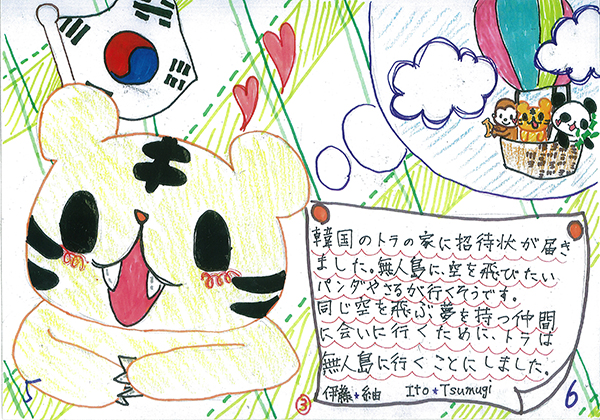 韓国のトラの家に招待状が届き
ました。無人島に、空を飛びたい
パンダやさるが行くそうです。
同じ空を飛ぶ夢を持つ仲間
に会いに行くために、トラは
無人島に行くことにしました。
伊藤★紬 Ito★Tsumugi
5
③
6